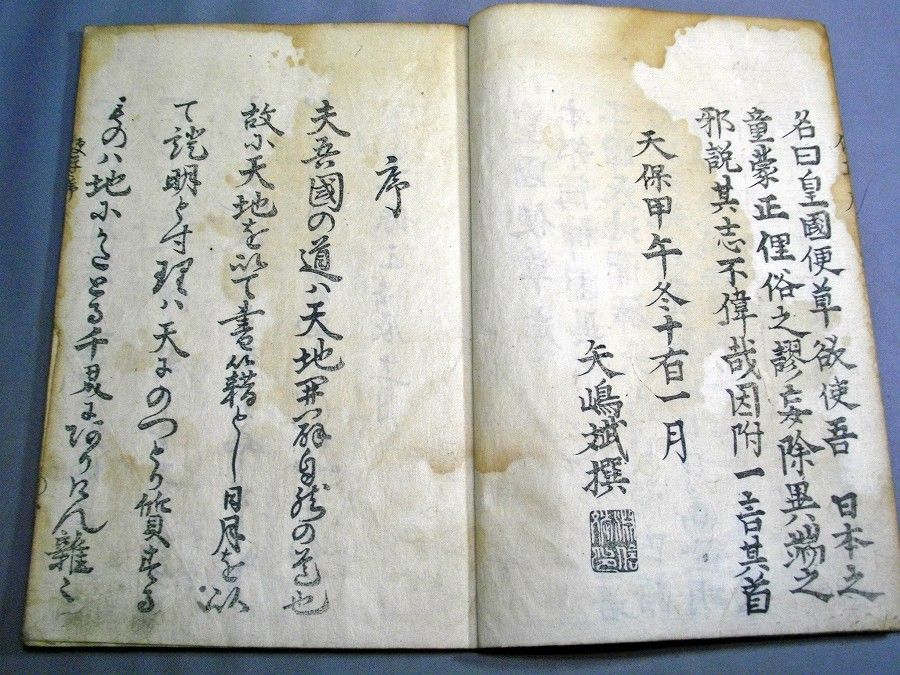 名曰皇國便草欲使吾 日本之
童蒙正俚俗之謬妄除異端之
邪説其志不偉哉因附一言其首
天保甲午冬十有一月
矢嶋 撰
序
夫吾國の道ハ天地開闢自然の道也
故に天地を以て書籍とし日月を以
て證明とす理ハ天にのつとり質する
ものハ地にかたとる千